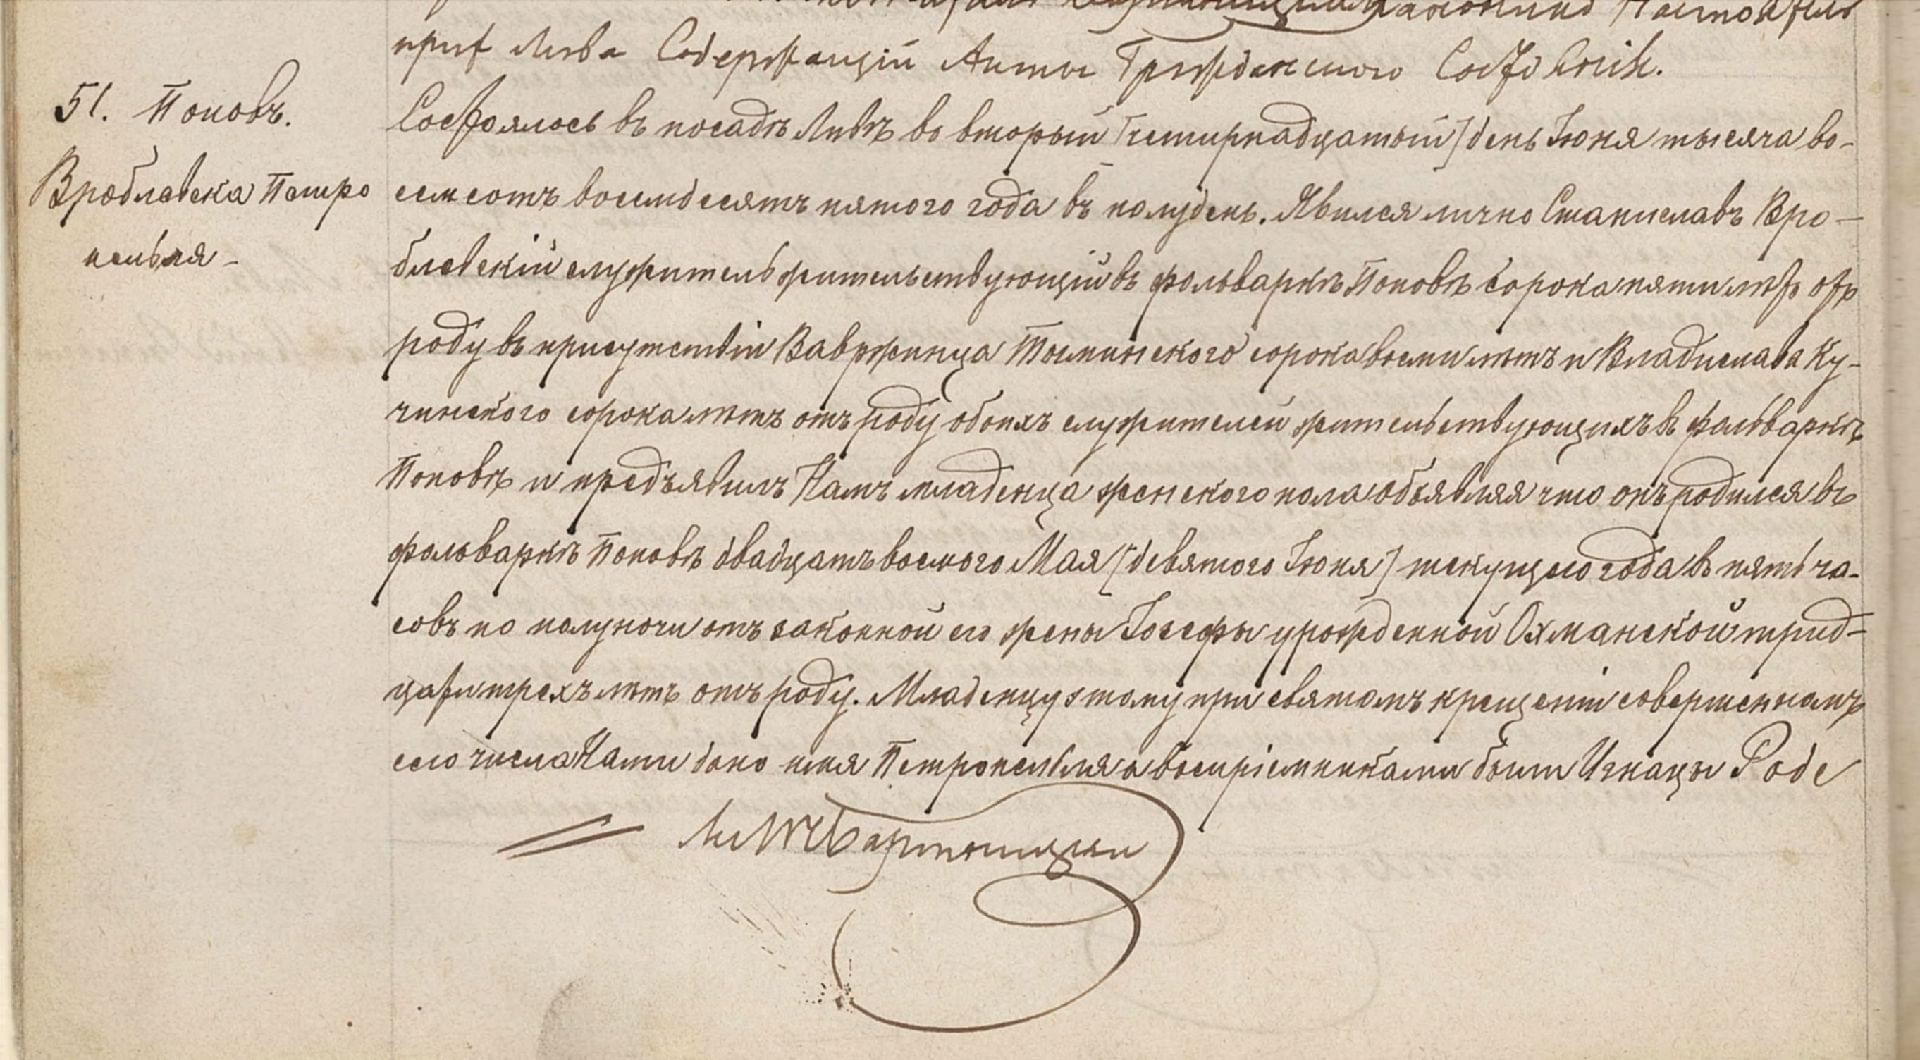 приф Лива Содержащій Акты Гражданскаго Состоянія.
51. Поповъ.
Врублевска Петро
нелья -
Состоялось въ посадѣ Ливѣ во вторый [четырнадцатый] день Іюня тысяча во-
семсотъ восемдесятъ пятого года въ полудень. Явился лично Станиславъ Вро-
блевскій служитель жительствующій въ фольваркѣ Поповѣ сорока пяти лѣтъ отъ
роду въ присутствіи Вавржинца Тыминского сорока восми лѣтъ и Владислава Ку-
чинского сорока лѣтъ отъ роду обоихъ служителей жительствующихъ въ фольваркѣ
Поповѣ и предъявилъ Намъ младенца женского пола объявляя что онъ родился въ
фольваркѣ Поповѣ двадцатъ восмого Мая [девятого Іюня] текущего года въ пять ча-
совъ по полуночи отъ законной его жены Іосефы урожденной Охманской трид-
цати трехъ лѣтъ отъ роду. Младенцу этому при святомъ крещеніи совершенномъ
сего числа Нами дано имя Петронелья а воспріемниками были Игнацы Роде